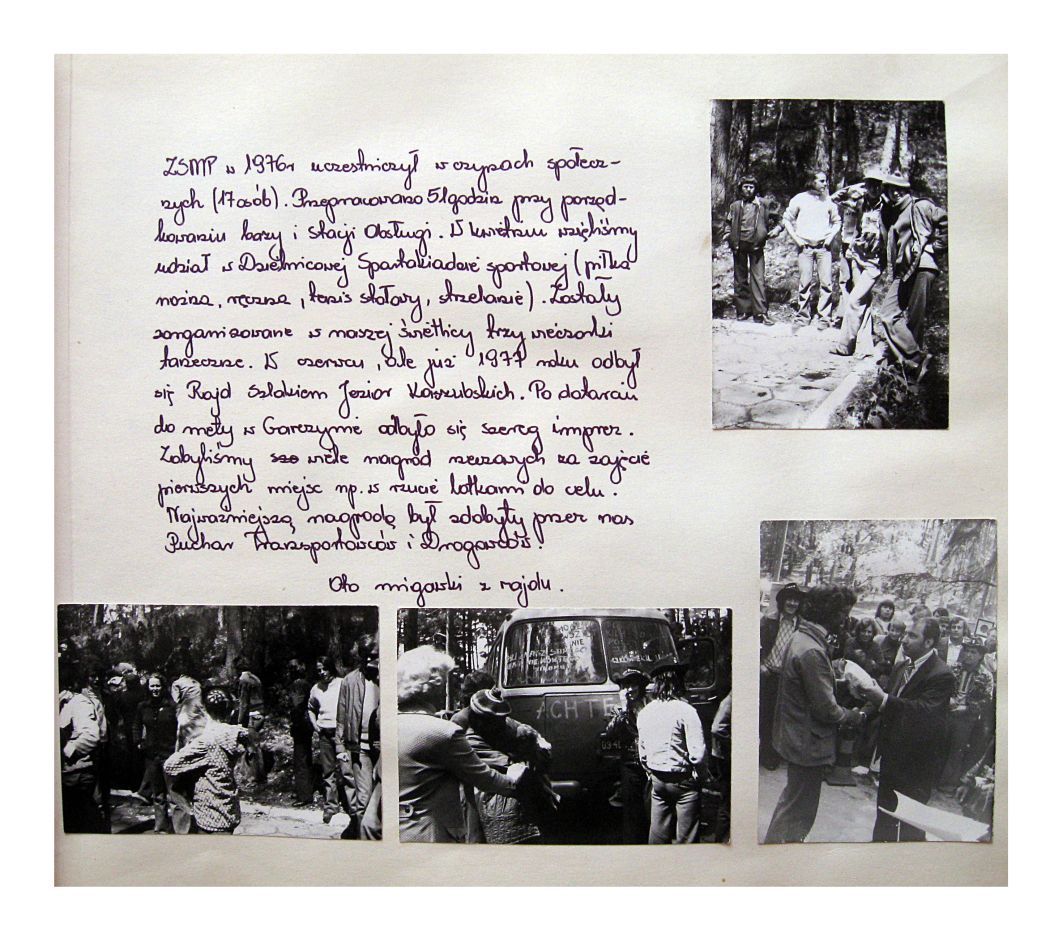 ZSMP w 1976r uczestniczył w czynach społecz-
nych (17 osób). Przepracowano 51 godzin przy porząd-
kowaniu bazy i stacji Obsługi. W kwietniu wzięliśmy
udział w Dzielnicowej Spartakiadzie sportowej (piłka
nożna, ręczna, tenis stołowy, strzelanie). Zostały
zorganizowane w naszej świetlicy trzy wieczorki
taneczne. W czerwcu, ale już 1977 roku odbył
się Rajd Szlakiem Jezior Kaszubskich. Po dotarciu
do mety w Garczynie odbyło się szereg imprez.
Zdobyliśmy wiele nagród rzeczowych za zajęcie
pierwszych miejsc np. w rzucie lotkami do celu.
Najważniejszą nagrodą był zdobyty przez nas
Puchar Transportowców i Drogowców.
Oto migawki z rajdu.
ACHTE